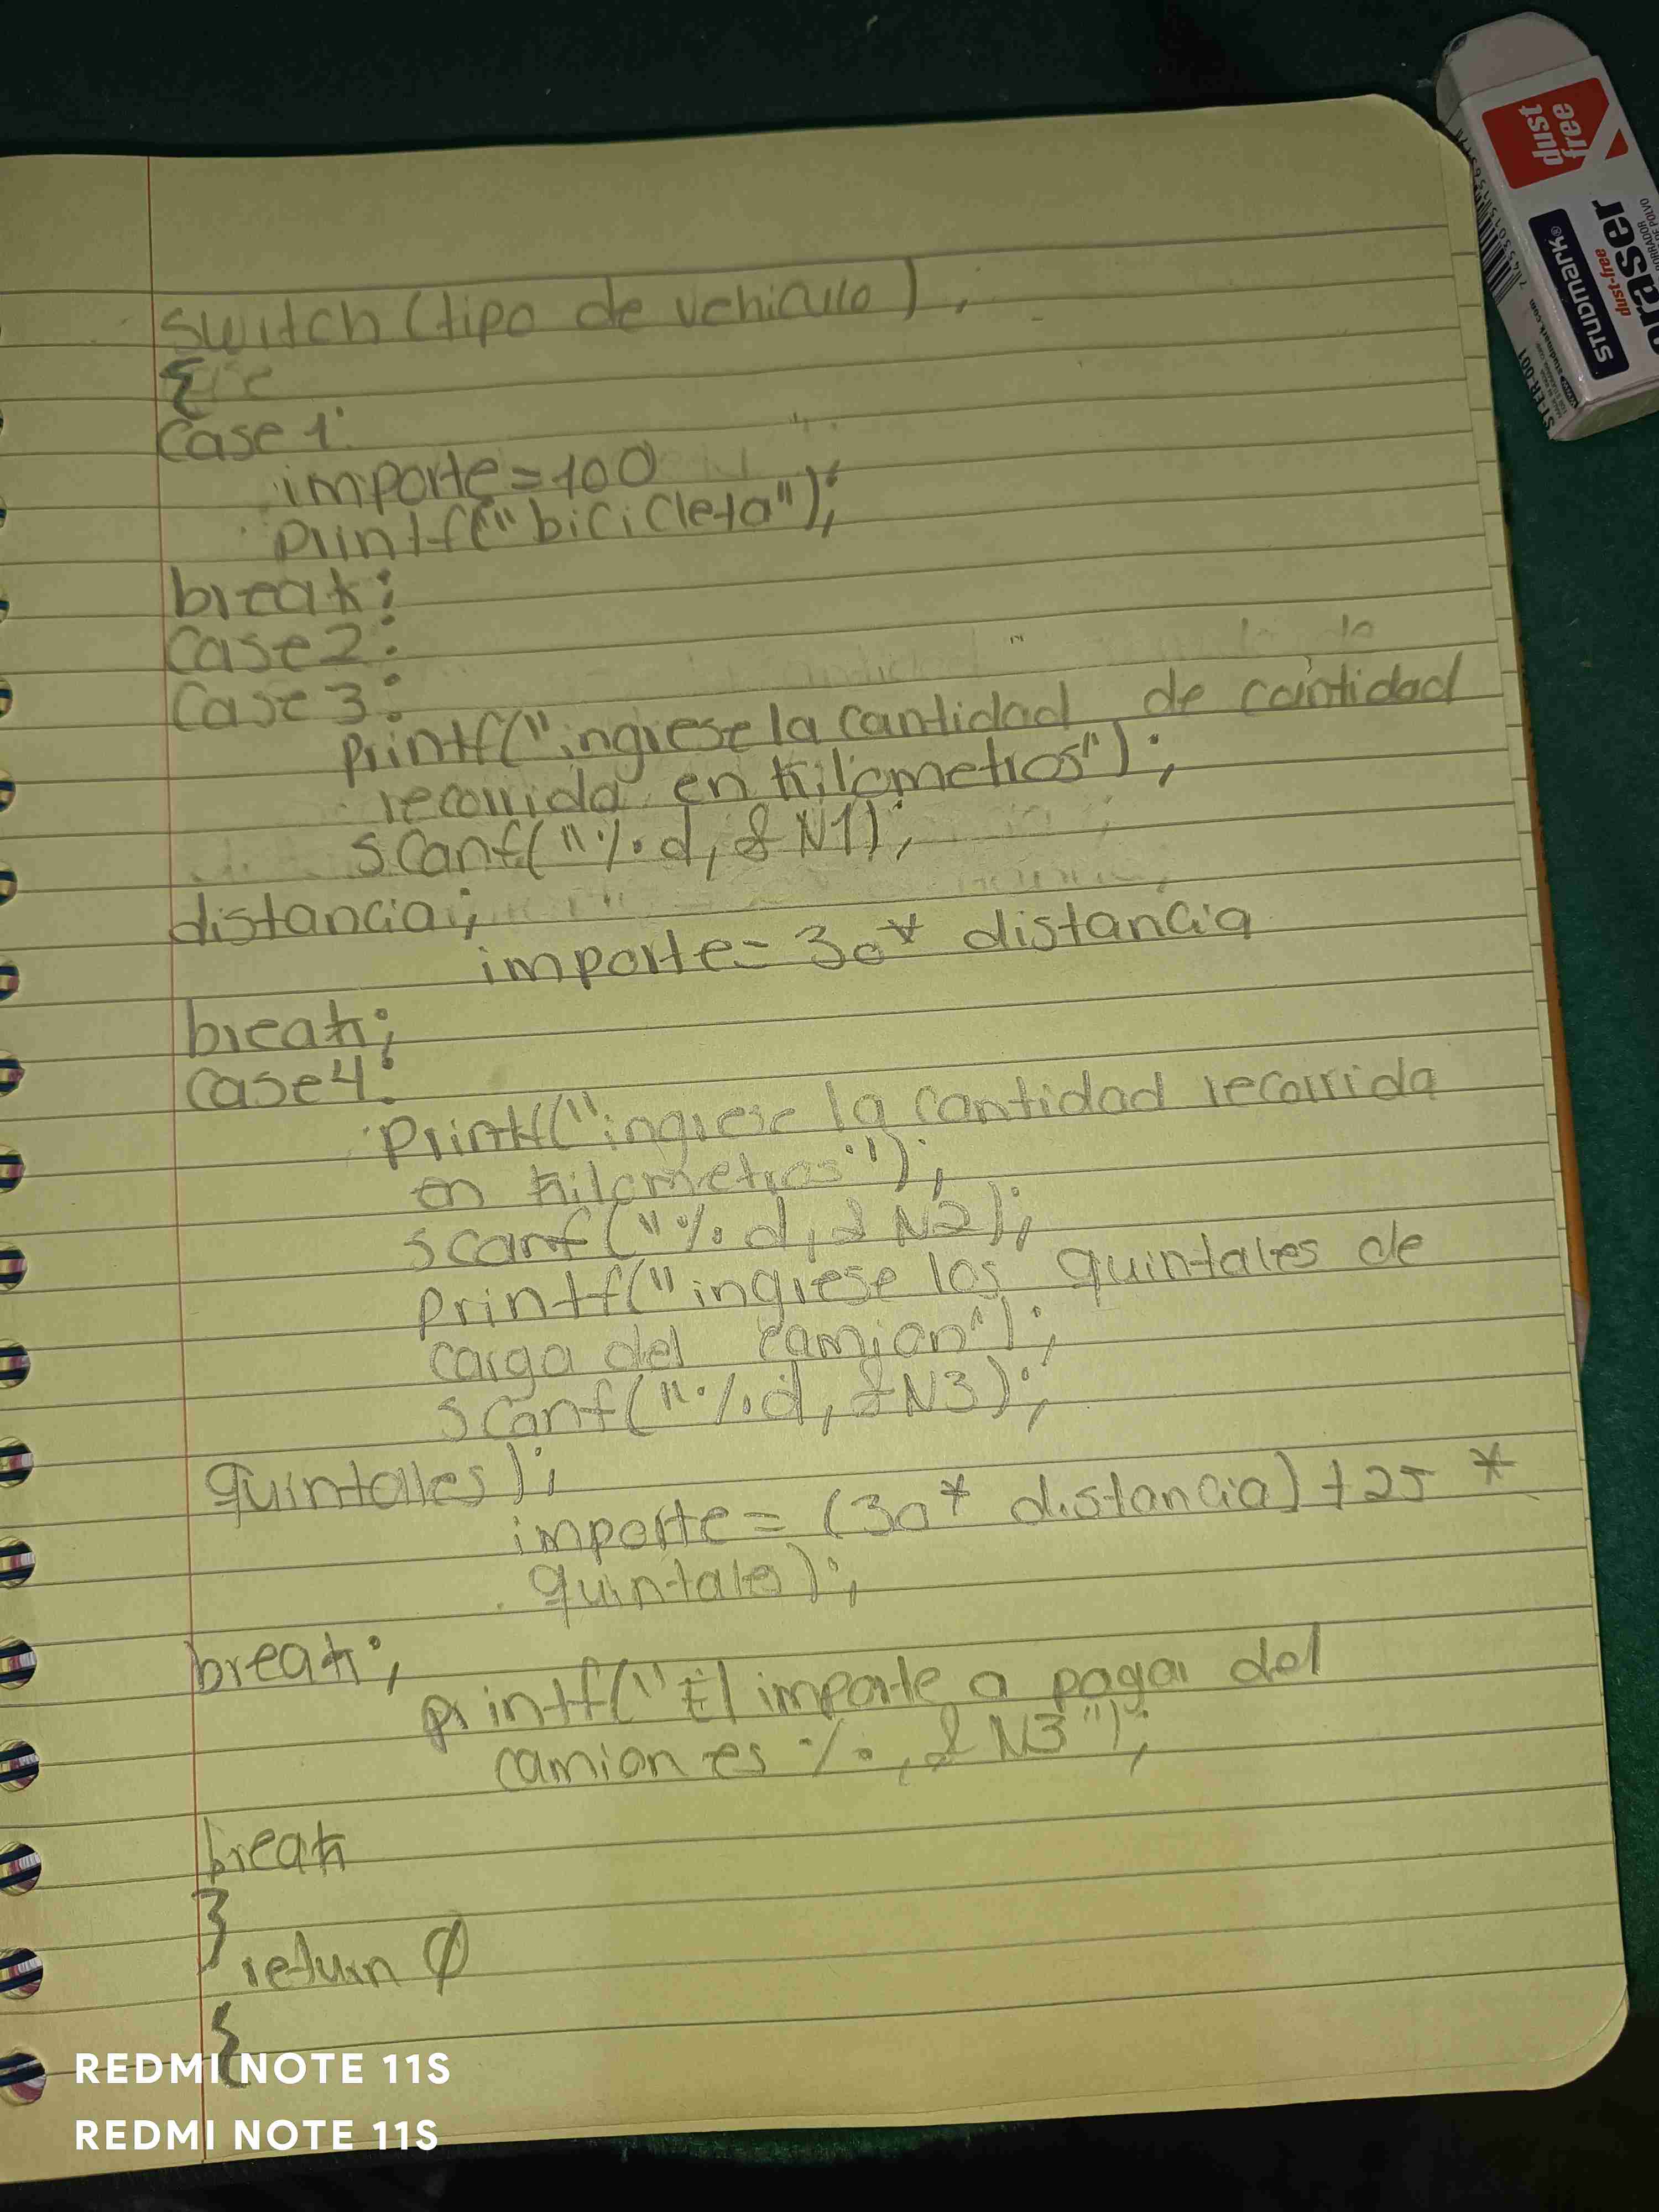 switch (tipo de vehiculo),
{
case 1:
importe = 100
printf("bicicleta");
break;
case 2:
case 3:
printf("ingrese la cantidad de cantidad
recorrida en kilometros");
scanf("%d, &N1);
distancia;
importe = 30* distancia
break;
case 4:
printf("ingrese la cantidad recorrida
en kilometros");
scanf("%d, &N2);
printf("ingrese los quintales de
carga del camion");
scanf("%d, &N3);
quintales);
importe = (30* distancia) + 25 *
quintales);
break;
printf("El importe a pagar del
camion es %, &N3");
break
}
return 0
{
dust free
eraser
dust-free
BORRADOR
STUDMARK®
www.studmark.com
ST-ER-001
REDMI NOTE 11S
REDMI NOTE 11S